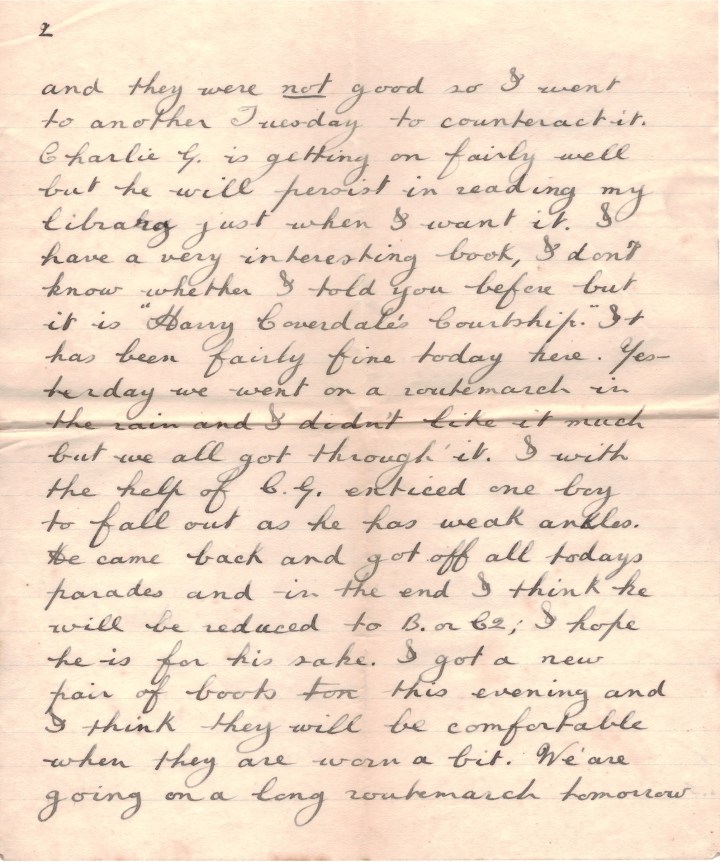 2
and they were not good so I went
to another Tuesday to counteract it.
Charlie G. is getting on fairly well
but he will persist in reading my
library just when I want it. I
have a very interesting book, I don't
know whether I told you before but
it is "Harry Coverdale's Courtship." It
has been fairly fine today here. Yes-
terday we went on a routemarch in
the rain and I didn't like it much
but we all got through it. I with
the help of C.G. enticed one boy
to fall out as he has weak ankles.
He came back and got off all todays
parades and in the end I think he
will be reduced to B. or C2; I hope
he is for his sake. I got a new
pair of boots ton this evening and
I think they will be comfortable
when they are worn a bit. We are
going on a long routemarch tomorrow